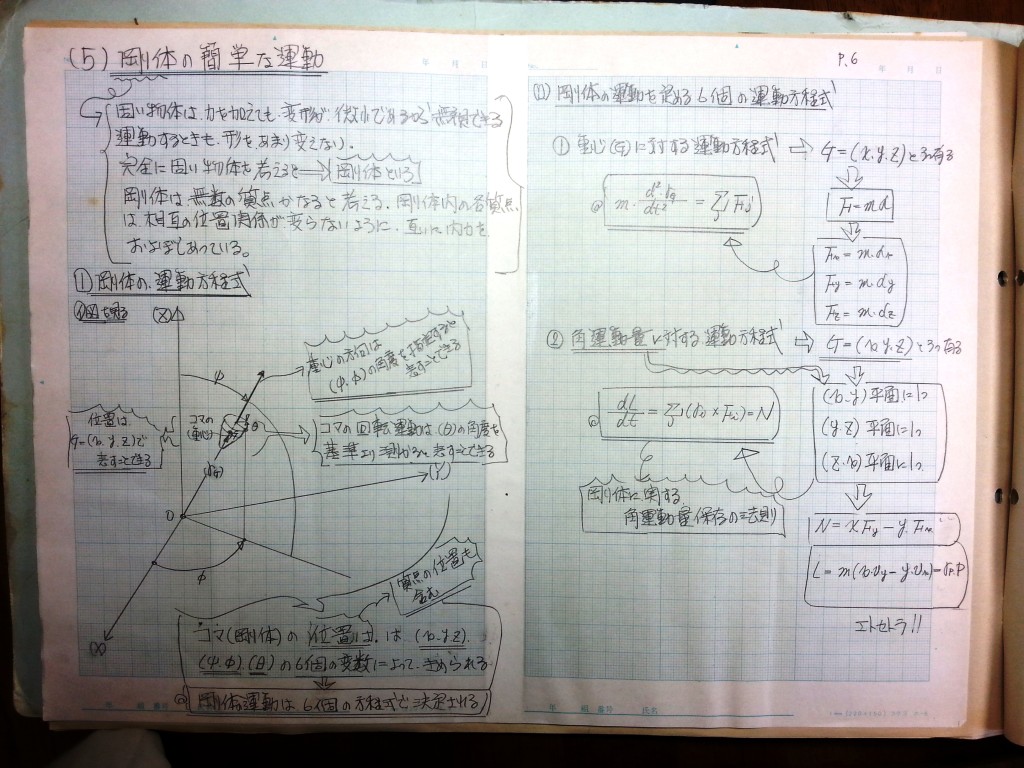 (5) 剛体の簡単な運動
固い物体は、力を加えても、変形が、微小であるから無視できる
運動するときも、形をあまり変えない。
完全に固い物体を考えると→剛体という
剛体は無数の質点からなると考える。剛体内の各質点
は、相互の位置関係が変らないように、互いに内力を
およぼしあっている。
① 剛体の、運動方程式
図を見る
(Z)
ψ
重心の方向は
(ψ,φ)の角度を指定すると
表すことできる
位置は
G=(x,y,z)で
表すことできる
コマの
重心
(G)
θ
コマの回転運動は、(θ)の角度を
基準より測かると表すことできる
(Y)
O
φ
(X)
質点の位置も
含む
コマ(剛体)の位置は、は(x,y,z)、
(ψ,φ)、(θ)の6個の変数によって、きめられる
@ 剛体運動は6個の方程式で決定される
P.6
年 月 日
(1) 剛体の運動を定める6個の運動方程式
① 重心(G)に対する運動方程式 ⇒ G=(x,y,z)と3つ有る
@ m・d²rG/dt² = Σj Fj
F=mα
Fx=m・αx
Fy=m・αy
Fz=m・αz
② 角運動量に対する運動方程式 ⇒ G=(x,y,z)と3つ有る
@ dL/dt = Σj(rj×Fj)=N
(x,y)平面に1つ
(y,z)平面に1つ
(z,x)平面に1つ
剛体に関する
角運動量保存の法則
N=xFy-y・Fx
L=m(x・vy-y・vx)=r・P
エトセトラ!!
年 組 番号
年 組 番号 氏名